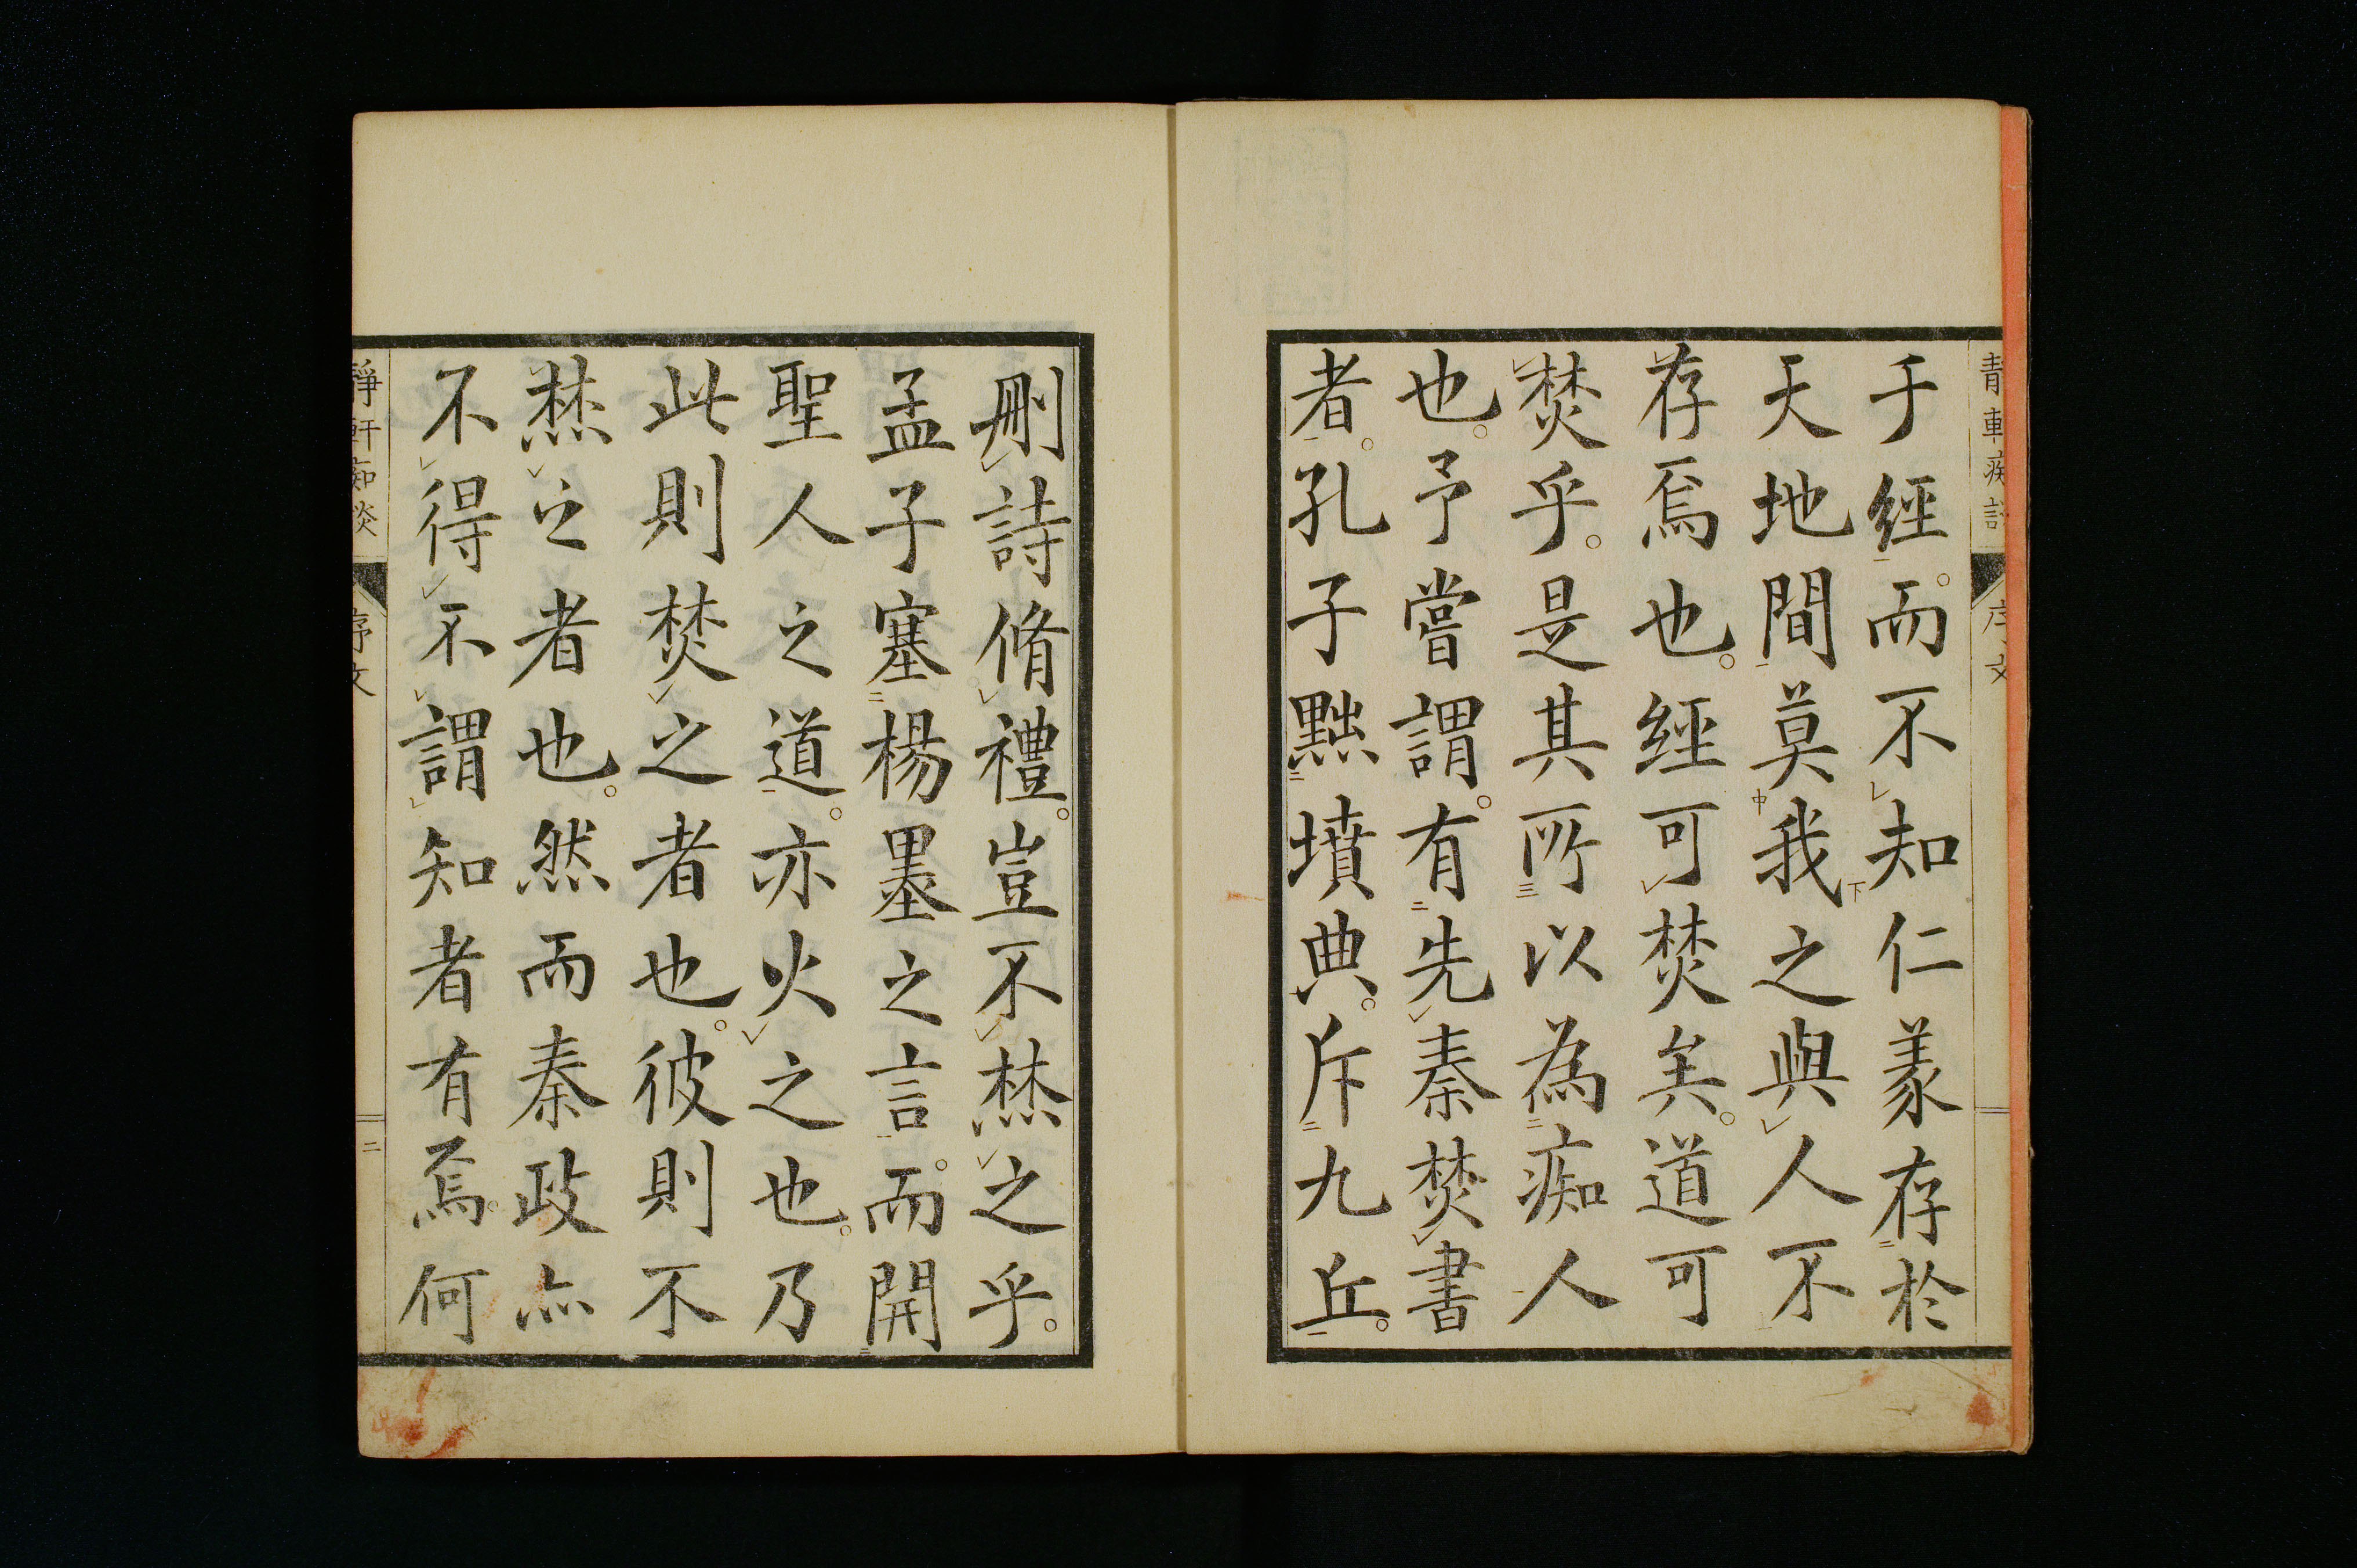 于經。而不知仁義存於
天地間莫我之與人不
存焉也。經可焚矣。道可
焚乎。是其所以為痴人
也。予嘗謂。有先秦焚書
者。孔子黜墳典。斥九丘。
刪詩脩禮。豈不焚之乎。
孟子塞楊墨之言。而開
聖人之道。亦火之也。乃
此則焚之者也。彼則不
焚之者也。然而秦政亦
不得不謂知者有焉。何
靜軒痴談
序文
二